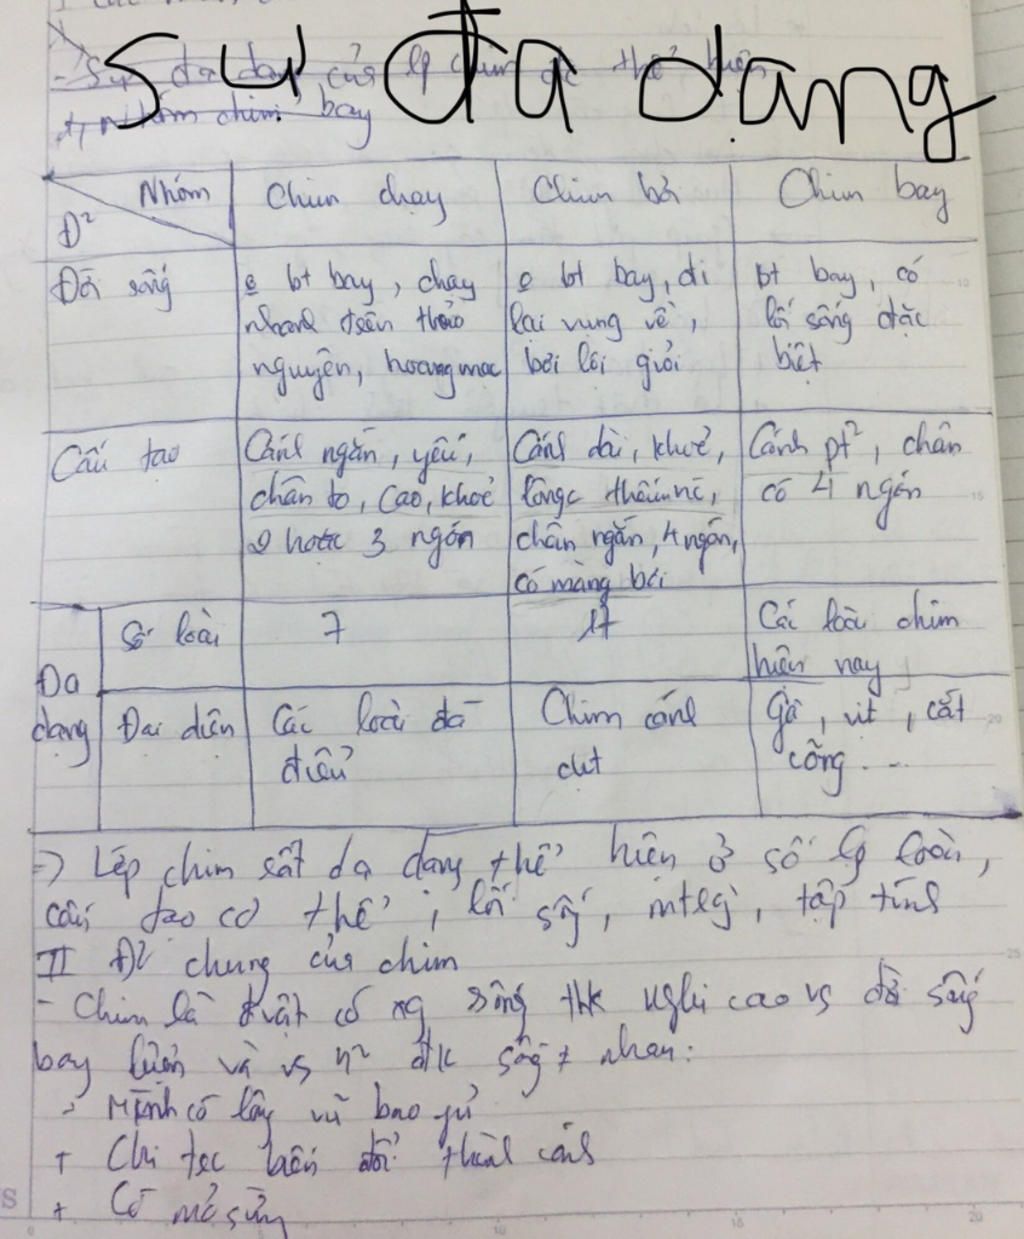 Sự đa dạng
- Sự đa dạng của lp chim đc thể hiện
+, Nhóm chim bay
Nhóm
Đ²
Chim chạy
Chim bơi
Chim bay
Đời sống
bt bay, chạy
nhanh trên thảo
nguyên, hoang mạc
bt bay, đi
lại vụng về,
bơi lội giỏi
bt bay, có
lối sống đặc
biệt
Cấu tạo
Cánh ngắn, yếu,
chân to, cao, khoẻ
2 hoặc 3 ngón
Cánh dài, khoẻ,
chân ngắn, 4 ngón,
có màng bơi
Cánh pt², chân
có 4 ngón
Đa
dạng
Số loài
7
17
Các loài chim
hiện nay
Đại diện
Các loài đà
điểu
Chim cánh
cụt
Gà, vịt, cắt
công ...
=> Lớp chim rất đa dạng thể hiện ở số lg loài,
cấu tạo cơ thể, lối sống, mtsg, tập tính
II Đ² chung của chim
- Chim là đ vật có xg sống thk nghi cao vs đời sống
bay lượn và vs n² đk sống ≠ nhau:
+ Mình có lông vũ bao phủ
+ Chi trc biến đổi thành cánh
+ Có mỏ sừng